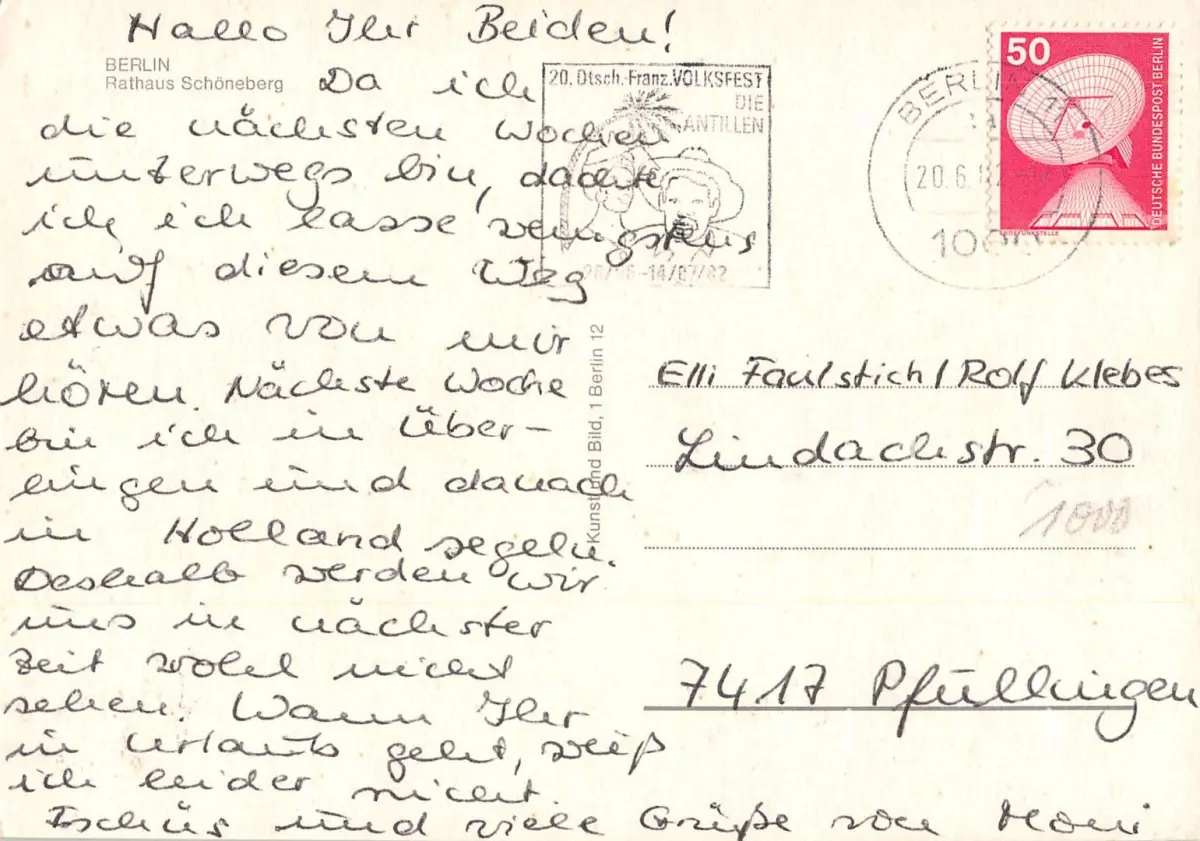 Hallo Ihr Beiden!
BERLIN
Rathaus Schöneberg
Da ich
die nächsten Wochen
unterwegs bin, dachte
ich ich lasse wenigstens
auf diesem Weg
etwas von mir
hören. Nächste Woche
bin ich in Über-
lingen und danach
in Holland segeln.
Deshalb werden wir
uns in nächster
Zeit wohl nicht
sehen. Wann Ihr
in Urlaub geht, weiß
ich leider nicht.
Tschüs und viele Grüße von Moni
20. Dtsch.-Franz. VOLKSFEST
DIE
ANTILLEN
-14/07/82
BERLIN
20.6.82
50
DEUTSCHE BUNDESPOST BERLIN
ERDEFUNKSTELLE
Kunst und Bild, 1 Berlin 12
Elli Faulstich / Rolf Klebes
Lindachstr. 30
1000
7417 Pfullingen